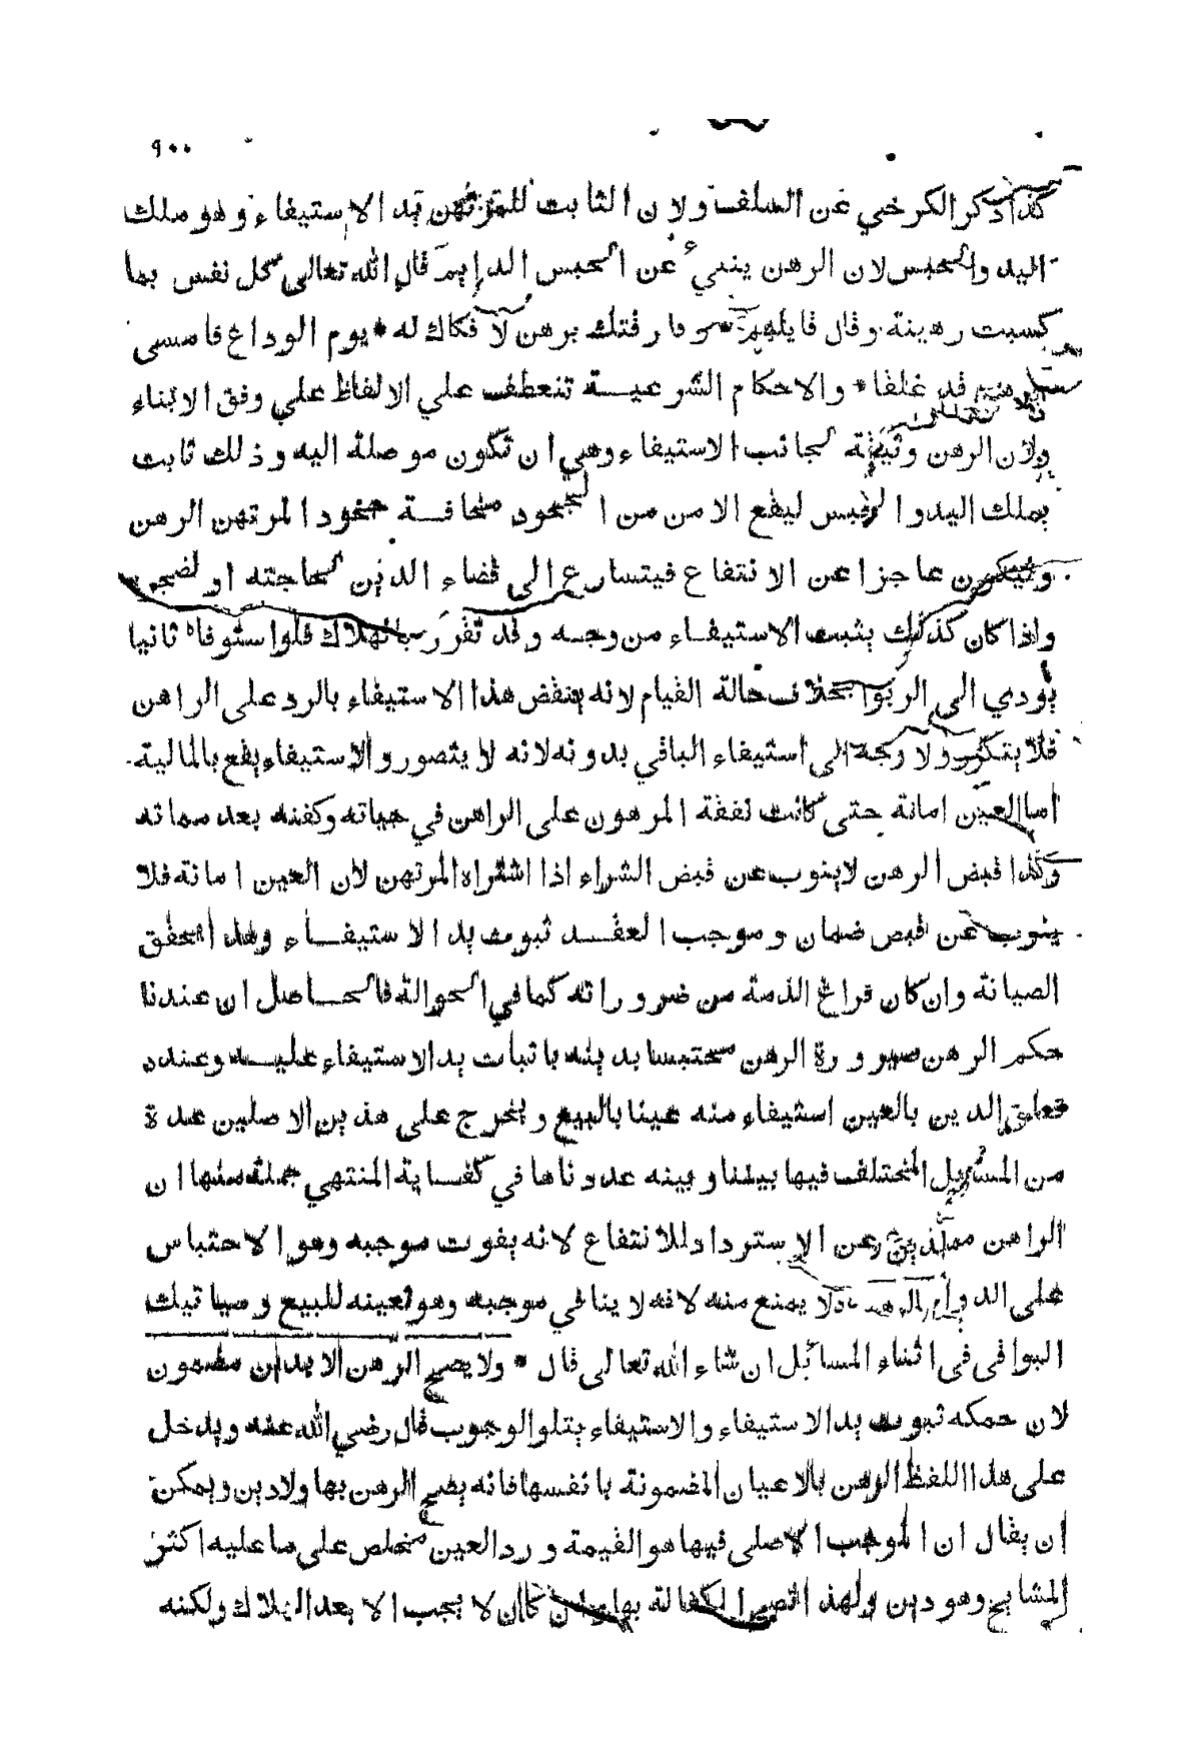 ٩٠٠
كذا ذكر الكرخي عن السلف ولان الثابت للمرتهن يد الاستيفاء وهو ملك
اليد والحبس لان الرهن ينبيء عن الحبس الدايم قال الله تعالى كل نفس بما
كسبت رهينة وقال قايلهم وفارقتك برهن لا فكاك له * يوم الوداع فامسى
الرهن قد غلقا * والاحكام الشرعية تنعطف علي الالفاظ علي وفق الانباء
ولان الرهن وثيقة لجانب الاستيفاء وهي ان تكون موصلة اليه وذلك ثابت
بملك اليد والحبس ليقع الامن من الجحود مخافة جحود المرتهن الرهن
وليكون عاجزا عن الانتفاع فيتسارع الى قضاء الدين لحاجته او لضجره
واذا كان كذلك يثبت الاستيفاء من وجه وقد تقرر بالهلاك فلو استوفاه ثانيا
يؤدي الى الربوا بخلاف حالة القيام لانه ينقض هذا الاستيفاء بالرد على الراهن
فلا يتكرر ولا وجه الى استيفاء الباقي بدونه لانه لا يتصور والاستيفاء يقع بالمالية
اما العين امانة حتى كانت نفقة المرهون على الراهن في حياته وكفنه بعد مماته
وكذا قبض الرهن لا ينوب عن قبض الشراء اذا اشتراه المرتهن لان العين امانة فلا
ينوب عن قبض ضمان وموجب العقد ثبوت يد الاستيفاء وهذا يحقق
الصيانة وان كان فراغ الذمة من ضروراته كما في الحوالة فالحاصل ان عندنا
حكم الرهن صيرورة الرهن محتبسا بدينه باثبات يد الاستيفاء عليه وعنده
تعلق الدين بالعين استيفاء منه عينا بالبيع ويخرج على هذين الاصلين عدة
من المسائل المختلف فيها بيننا وبينه عددناها في كفاية المنتهي جملة منها ان
الراهن ممنوع عن الاسترداد للانتفاع لانه يفوت موجبه وهو الاحتباس
على الدوام وعنده لا يمنع منه لانه لا ينافي موجبه وهو تعينه للبيع وسياتيك
البواقى فى اثناء المسائل ان شاء الله تعالى قال * ولا يصح الرهن الا بدين مضمون
لان حكمه ثبوت يد الاستيفاء والاستيفاء يتلو الوجوب قال رضي الله عنه ويدخل
على هذا اللفظ الرهن بالاعيان المضمونة بانفسها فانه يصح الرهن بها ولا دين ويمكن
ان يقال ان الموجب الاصلى فيها هو القيمة ورد العين مخلص على ما عليه اكثر
المشايخ وهو دين ولهذا تصح الكفالة بها ولئن كان لا يجب الا بعد الهلاك ولكنه